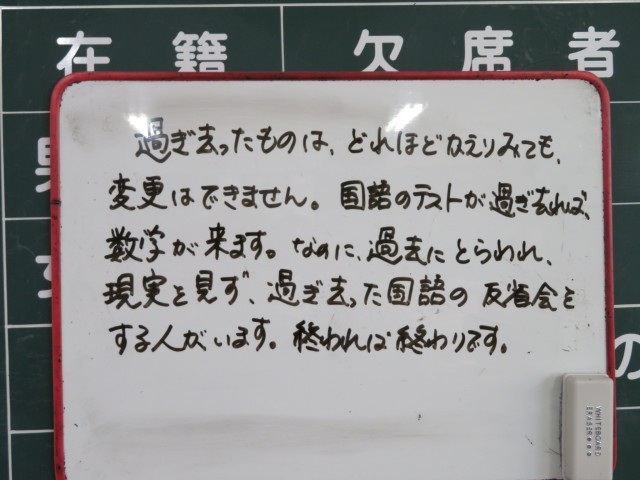 在籍 欠席者
過ぎ去ったものは、どれほどかえりみても、
変更はできません。国語のテストが過ぎ去れば、
数学が来ます。なのに、過去にとらわれ、
現実を見ず、過ぎ去った国語の反省会を
する人がいます。終われば終わりです。
の
WHITEBOARD
ERASER